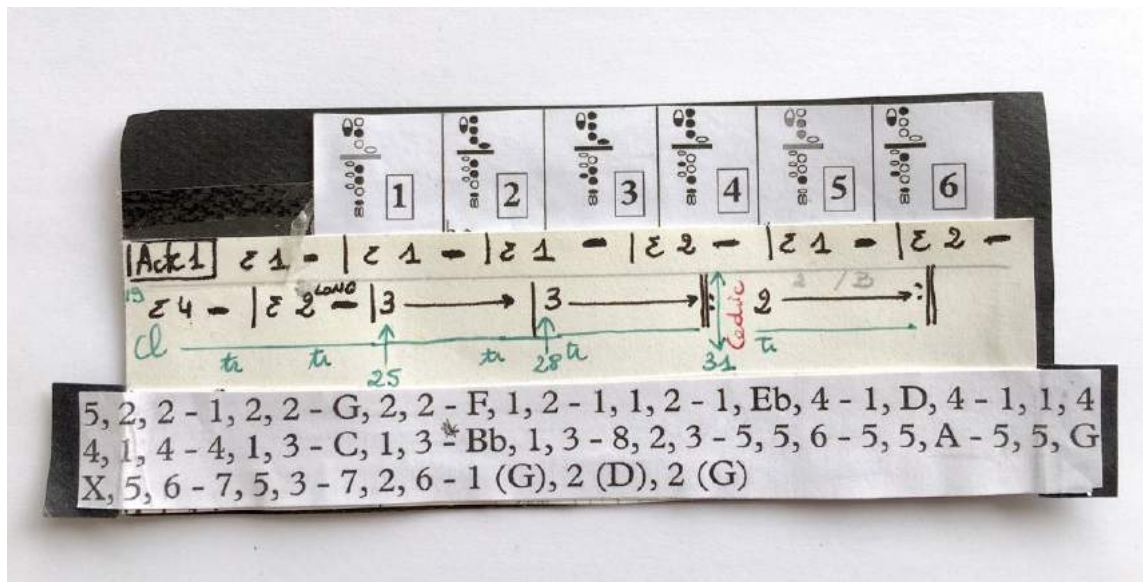 1 2 3 4 5 6
Act 1 ٤ 1 - | ٤ 1 - | ٤ 1 - | ٤ 2 - | ٤ 1 - | ٤ 2 -
19 ٤ 4 - | ٤ 2 LONG - | 3 → | 3 → :|| Cedric 2 → :||
Cl tr tr 25 tr 28 tr 31 tr
5, 2, 2 - 1, 2, 2 - G, 2, 2 - F, 1, 2 - 1, 1, 2 - 1, Eb, 4 - 1, D, 4 - 1, 1, 4
4, 1, 4 - 4, 1, 3 - C, 1, 3 *- Bb, 1, 3 - 8, 2, 3 - 5, 5, 6 - 5, 5, A - 5, 5, G
X, 5, 6 - 7, 5, 3 - 7, 2, 6 - 1 (G), 2 (D), 2 (G)